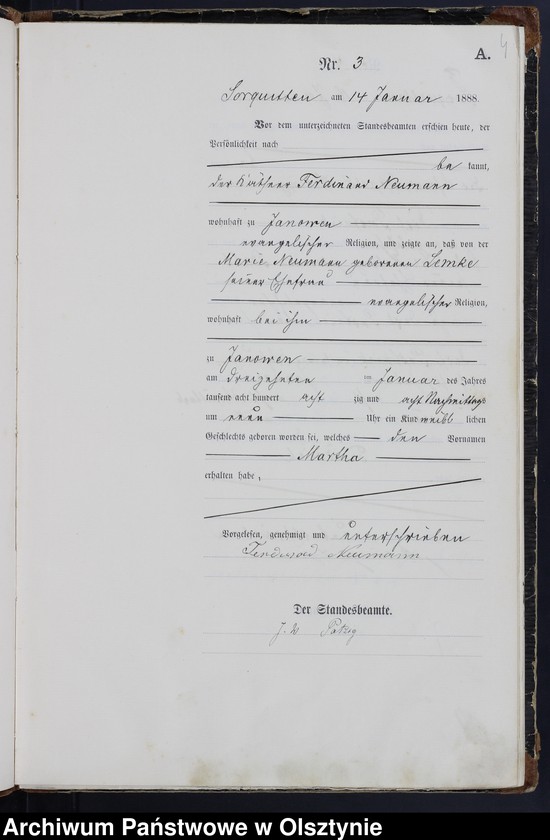 4
A.
Nr. 3
Sorquitten am 14 Januar 1888.
Vor dem unterzeichneten Standesbeamten erschien heute, der
Persönlichkeit nach
be kannt,
der Käthner Ferdinand Neumann
wohnhaft zu Janowen
evangelischer Religion, und zeigte an, daß von der
Marie Neumann geborenen Lemke
seiner Ehefrau
evangelischer Religion,
wohnhaft bei ihm
zu Janowen
am dreizehnten im Januar des Jahres
tausend acht hundert acht zig und acht Nachmittags
um neun Uhr ein Kind weibl lichen
Geschlechts geboren worden sei, welches den Vornamen
Martha
erhalten habe,
Vorgelesen, genehmigt und unterschrieben
Ferdinand Neumann
Der Standesbeamte.
Archiwum Państwowe w Olsztynie